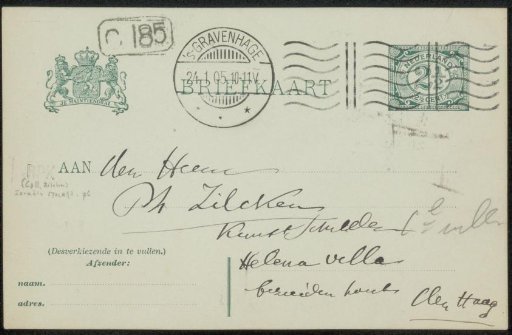 C 185
'S-GRAVENHAGE
21.1.05.10-11V.
NEDERLAND
2½
CENT
JE MAINTIENDRAI
BRIEFKAART
AAN den Heer
Ph Zilcken
Kunstschilder
Helena villa
bezuidenhout
den Haag
(Desverkiezende in te vullen.)
Afzender:
naam.
adres.